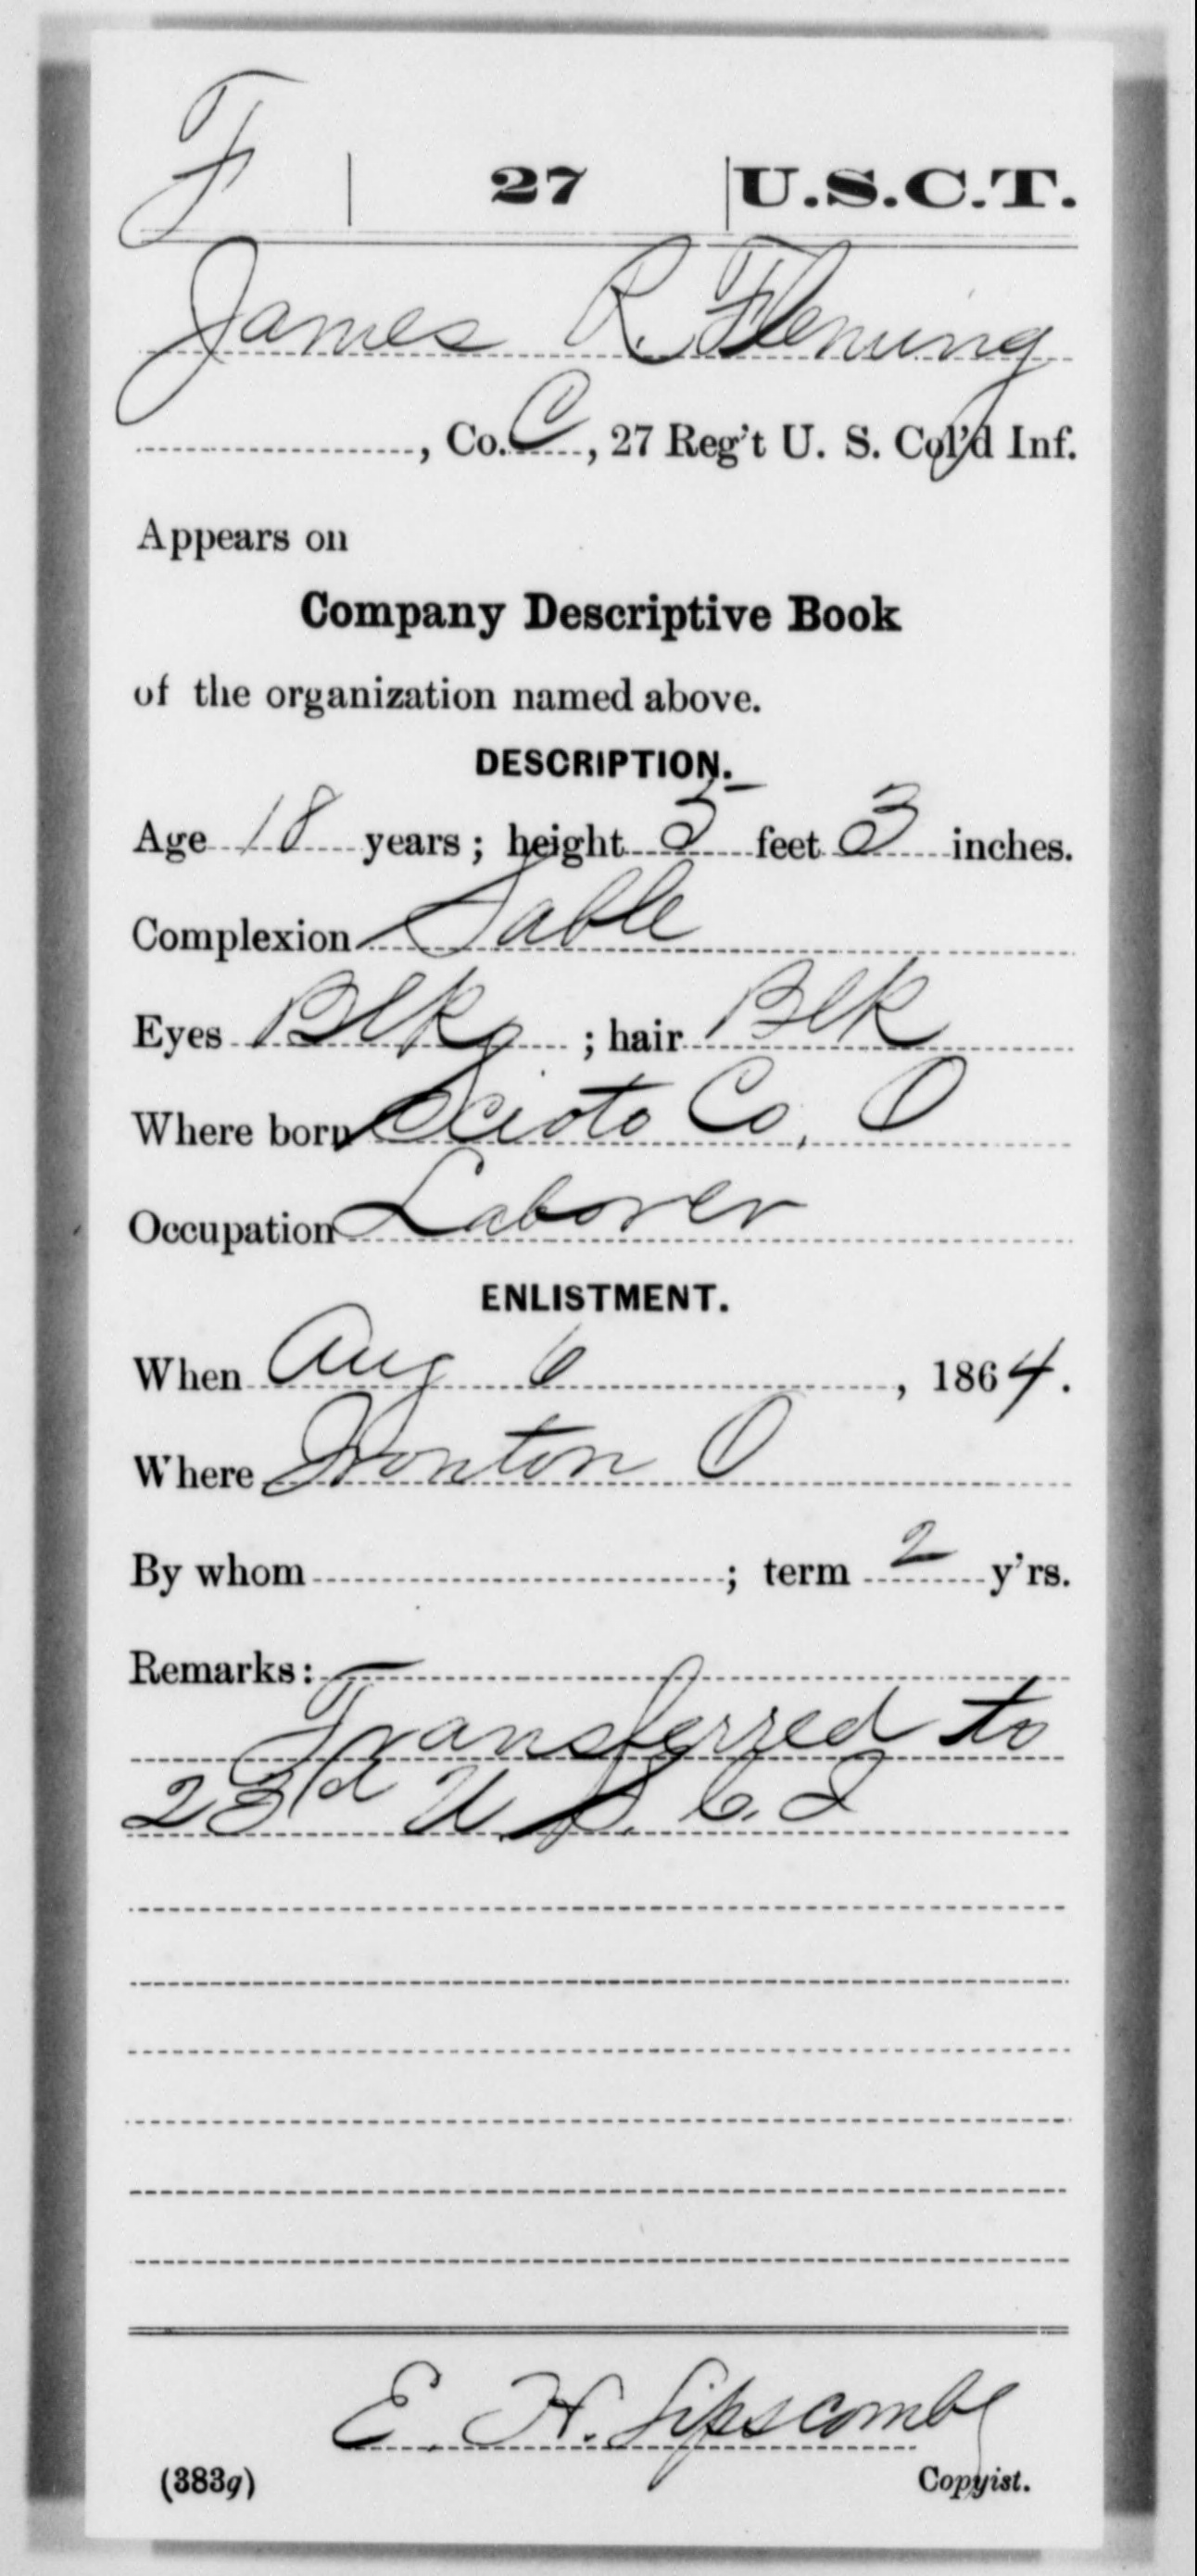 F | 27 | U.S.C.T.
James R. Fleming
, Co. C, 27 Reg't U. S. Col'd Inf.
Appears on
Company Descriptive Book
of the organization named above.
DESCRIPTION.
Age 18 years; height 5 feet 3 inches.
Complexion Sable
Eyes Blk; hair Blk
Where born Scioto Co, O
Occupation Laborer
ENLISTMENT.
When Aug 6, 1864.
Where Ironton O
By whom ; term 2 y'rs.
Remarks:
Transferred to
23rd U.S.C.I
E. H. Lipscomb
(383g) Copyist.